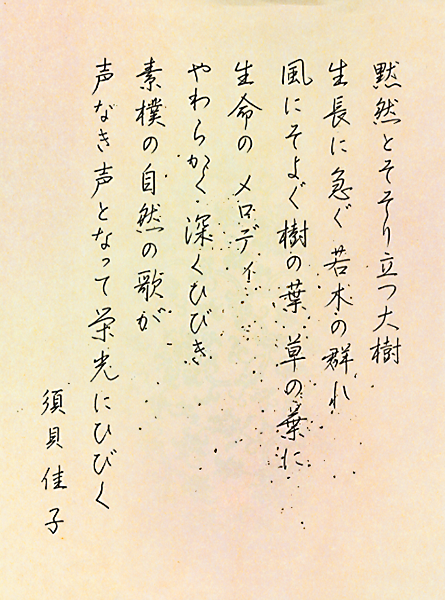 黙然とそそり立つ大樹
生長に急ぐ若木の群れ
風にそよぐ樹の葉 草の葉に
生命のメロディ
やわらかく深くひびき
素樸の自然の歌が
声なき声となって栄光にひびく
須貝佳子